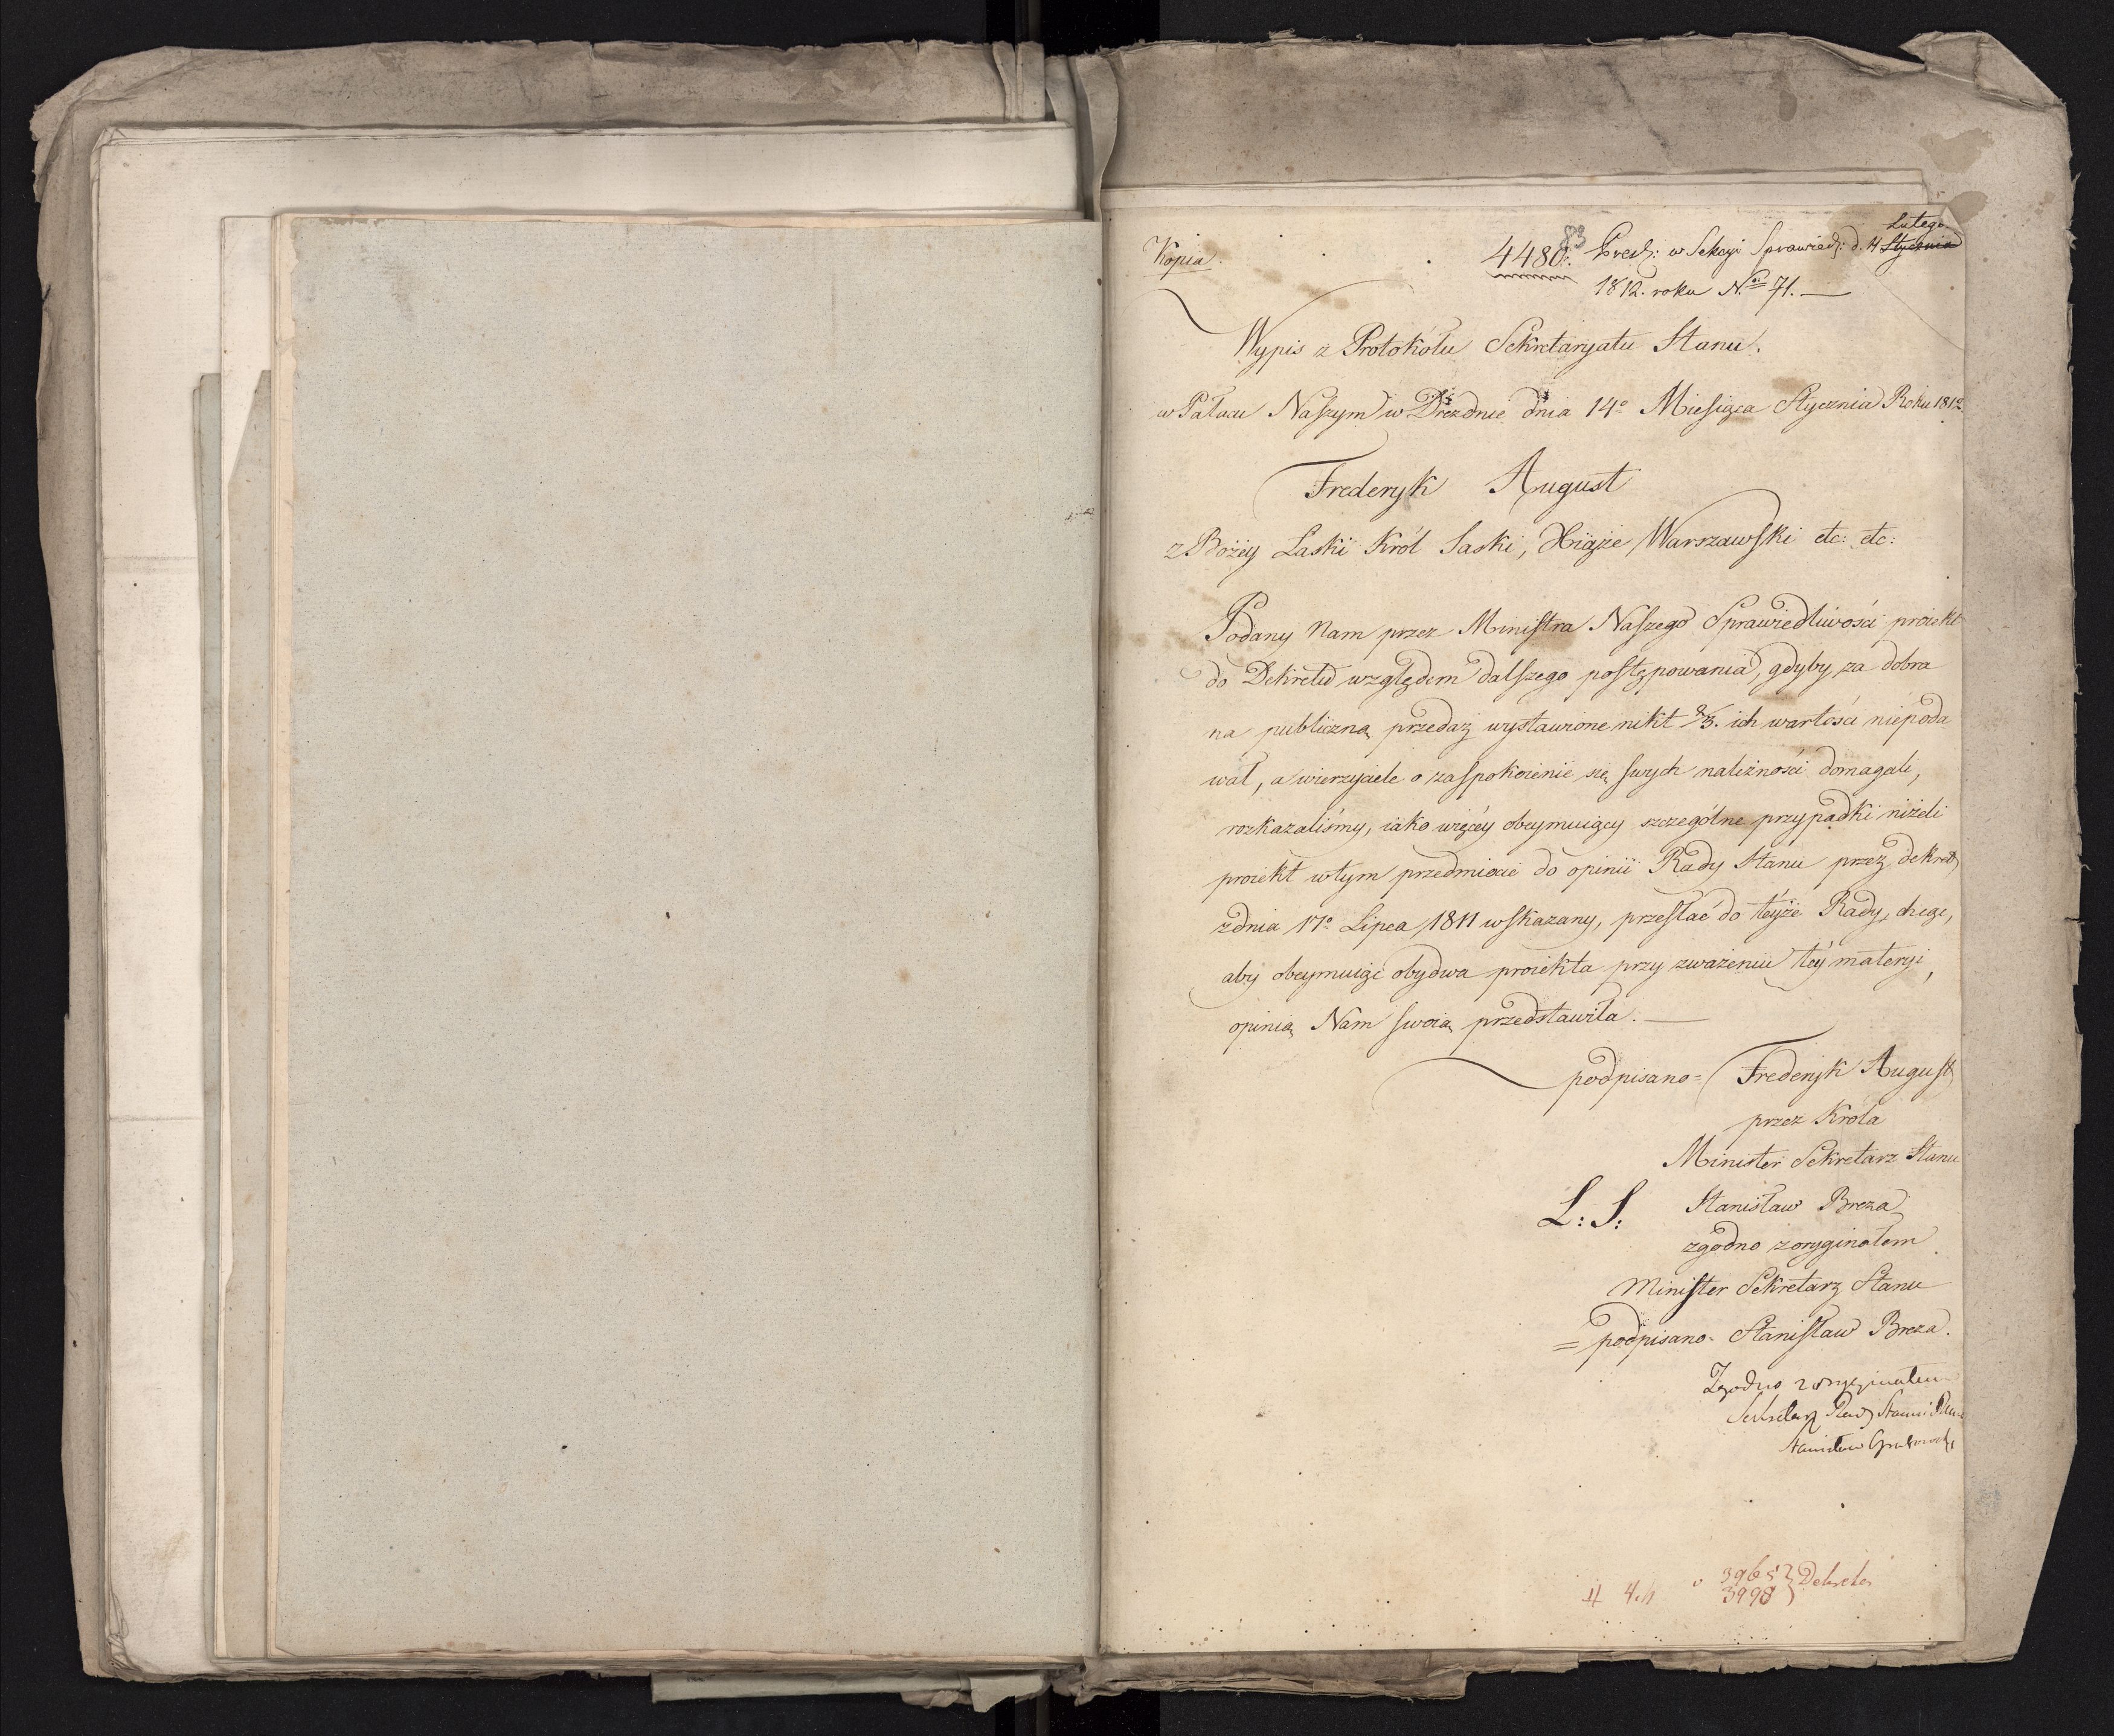 Kopia.
83
4480.
Presz: w Sekcyi Sprawied: d. 4 Stycznia Lutego
1812. roku N.o 71. —
Wypis z Protokółu Sekretaryatu Stanu.
w Pałacu Naszym w Dreznie dnia 14o Miesiąca Stycznia Roku 1812.
Frederyk August
z Bożéy Łaski Król Saski, Xiąże Warszawski etc: etc:
Podany Nam przez Ministra Naszego Sprawiedliwości proiekt
do Dekretu względem dalszego postępowania, gdyby za dobra
na publiczną przedaż wystawione nikt 2/3. ich wartości niepoda
wał, a wierzyciele o zaspokoienie się swych należności domagali,
rozkazaliśmy, iako więcéy obeymuiący szczególne przypadki niżeli
proiekt w tym przedmiocie do opinii Rady Stanu przez dekret
z dnia 17o Lipca 1811 wskazany, przesłać do téyże Rady, chcąc,
aby obeymuiąc obydwa proiekta przy zważeniu téy materyi,
opinią Nam swoią przedstawiła. —
podpisano = Frederyk August
przez Króla
Minister Sekretarz Stanu
L: S: Stanisław Breza
zgodno z oryginałem
Minister Sekretarz Stanu
= podpisano - Stanisław Breza.
Zgodno z oryginałem
Sekretarz Rady Stanu
Stanisław Grabowski
4.
3965
3998 } Dekreta